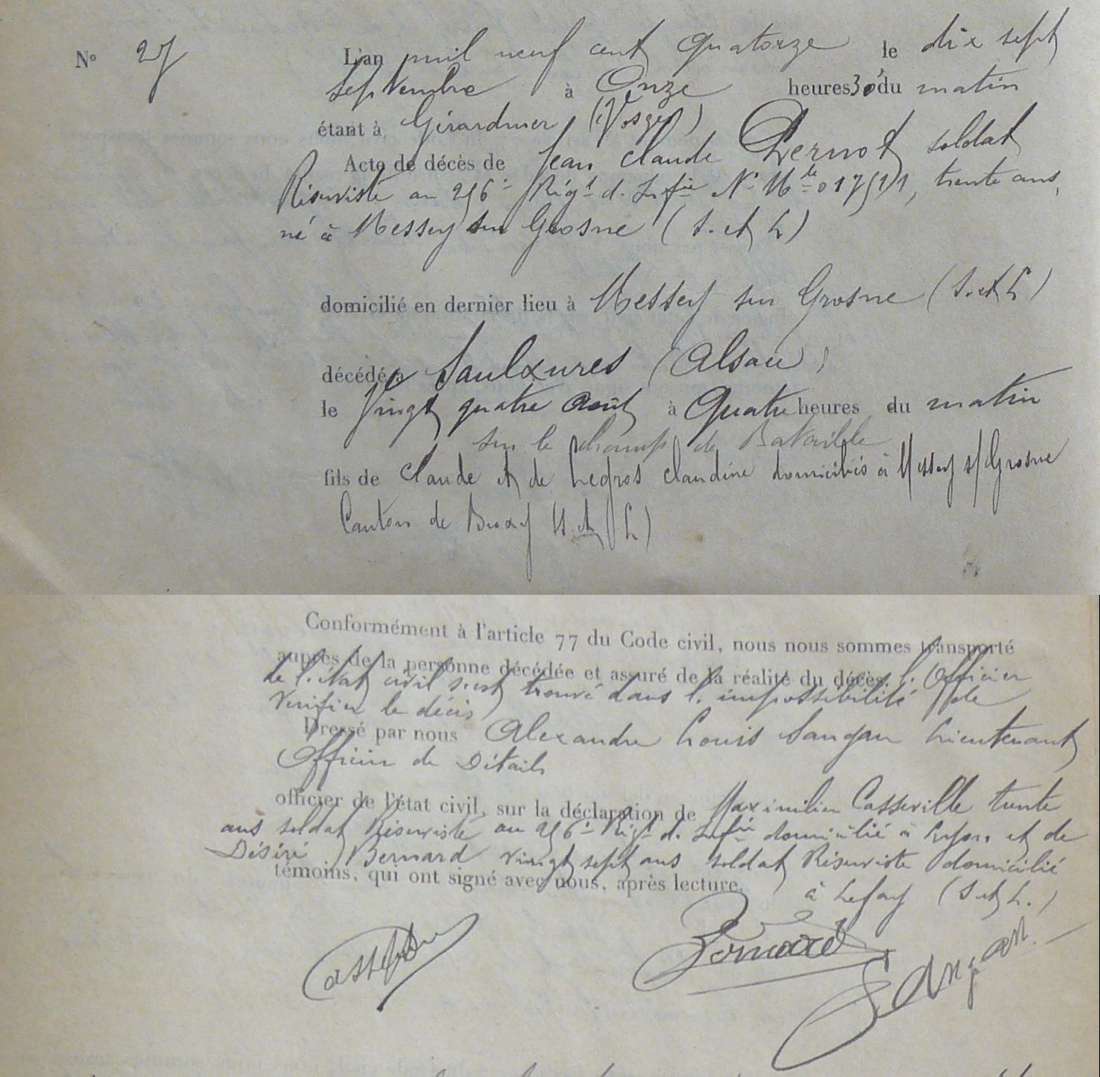 N° 27
L'an mil neuf cent quatorze le dix sept
Septembre à Onze heures 30 du matin
étant à Gérardmer (Vosges)
Acte de décès de Jean Claude Pernot soldat
Réserviste au 256e Régt d. Infie N° Mle 017511, trente ans,
né à Messey sur Grosne (S. et L)
domicilié en dernier lieu à Messey sur Grosne (S. et L)
décédé à Saulxures (Alsace)
le Vingt quatre Août à Quatre heures du matin
sur le champ de Bataille
fils de Claude et de Legros Claudine domiciliés à Messey s/Grosne
Canton de Buxy (S. et L)
Conformément à l'article 77 du Code civil, nous nous sommes transporté
auprès de la personne décédée et assuré de la réalité du décès. L'Officier
de l'état civil s'est trouvé dans l'impossibilité de
vérifier le décès
Dressé par nous Alexandre Louis Sangan Lieutenant
Officier de Détails
officier de l'état civil, sur la déclaration de Maximilien Casseville trente
ans soldat Réserviste au 256e Régt d. Infie domicilié à et de
Désiré Bernard vingt sept ans soldat Réserviste domicilié
témoins, qui ont signé avec nous, après lecture.
à Lefay (S. et L.)
Bernard
Sangan